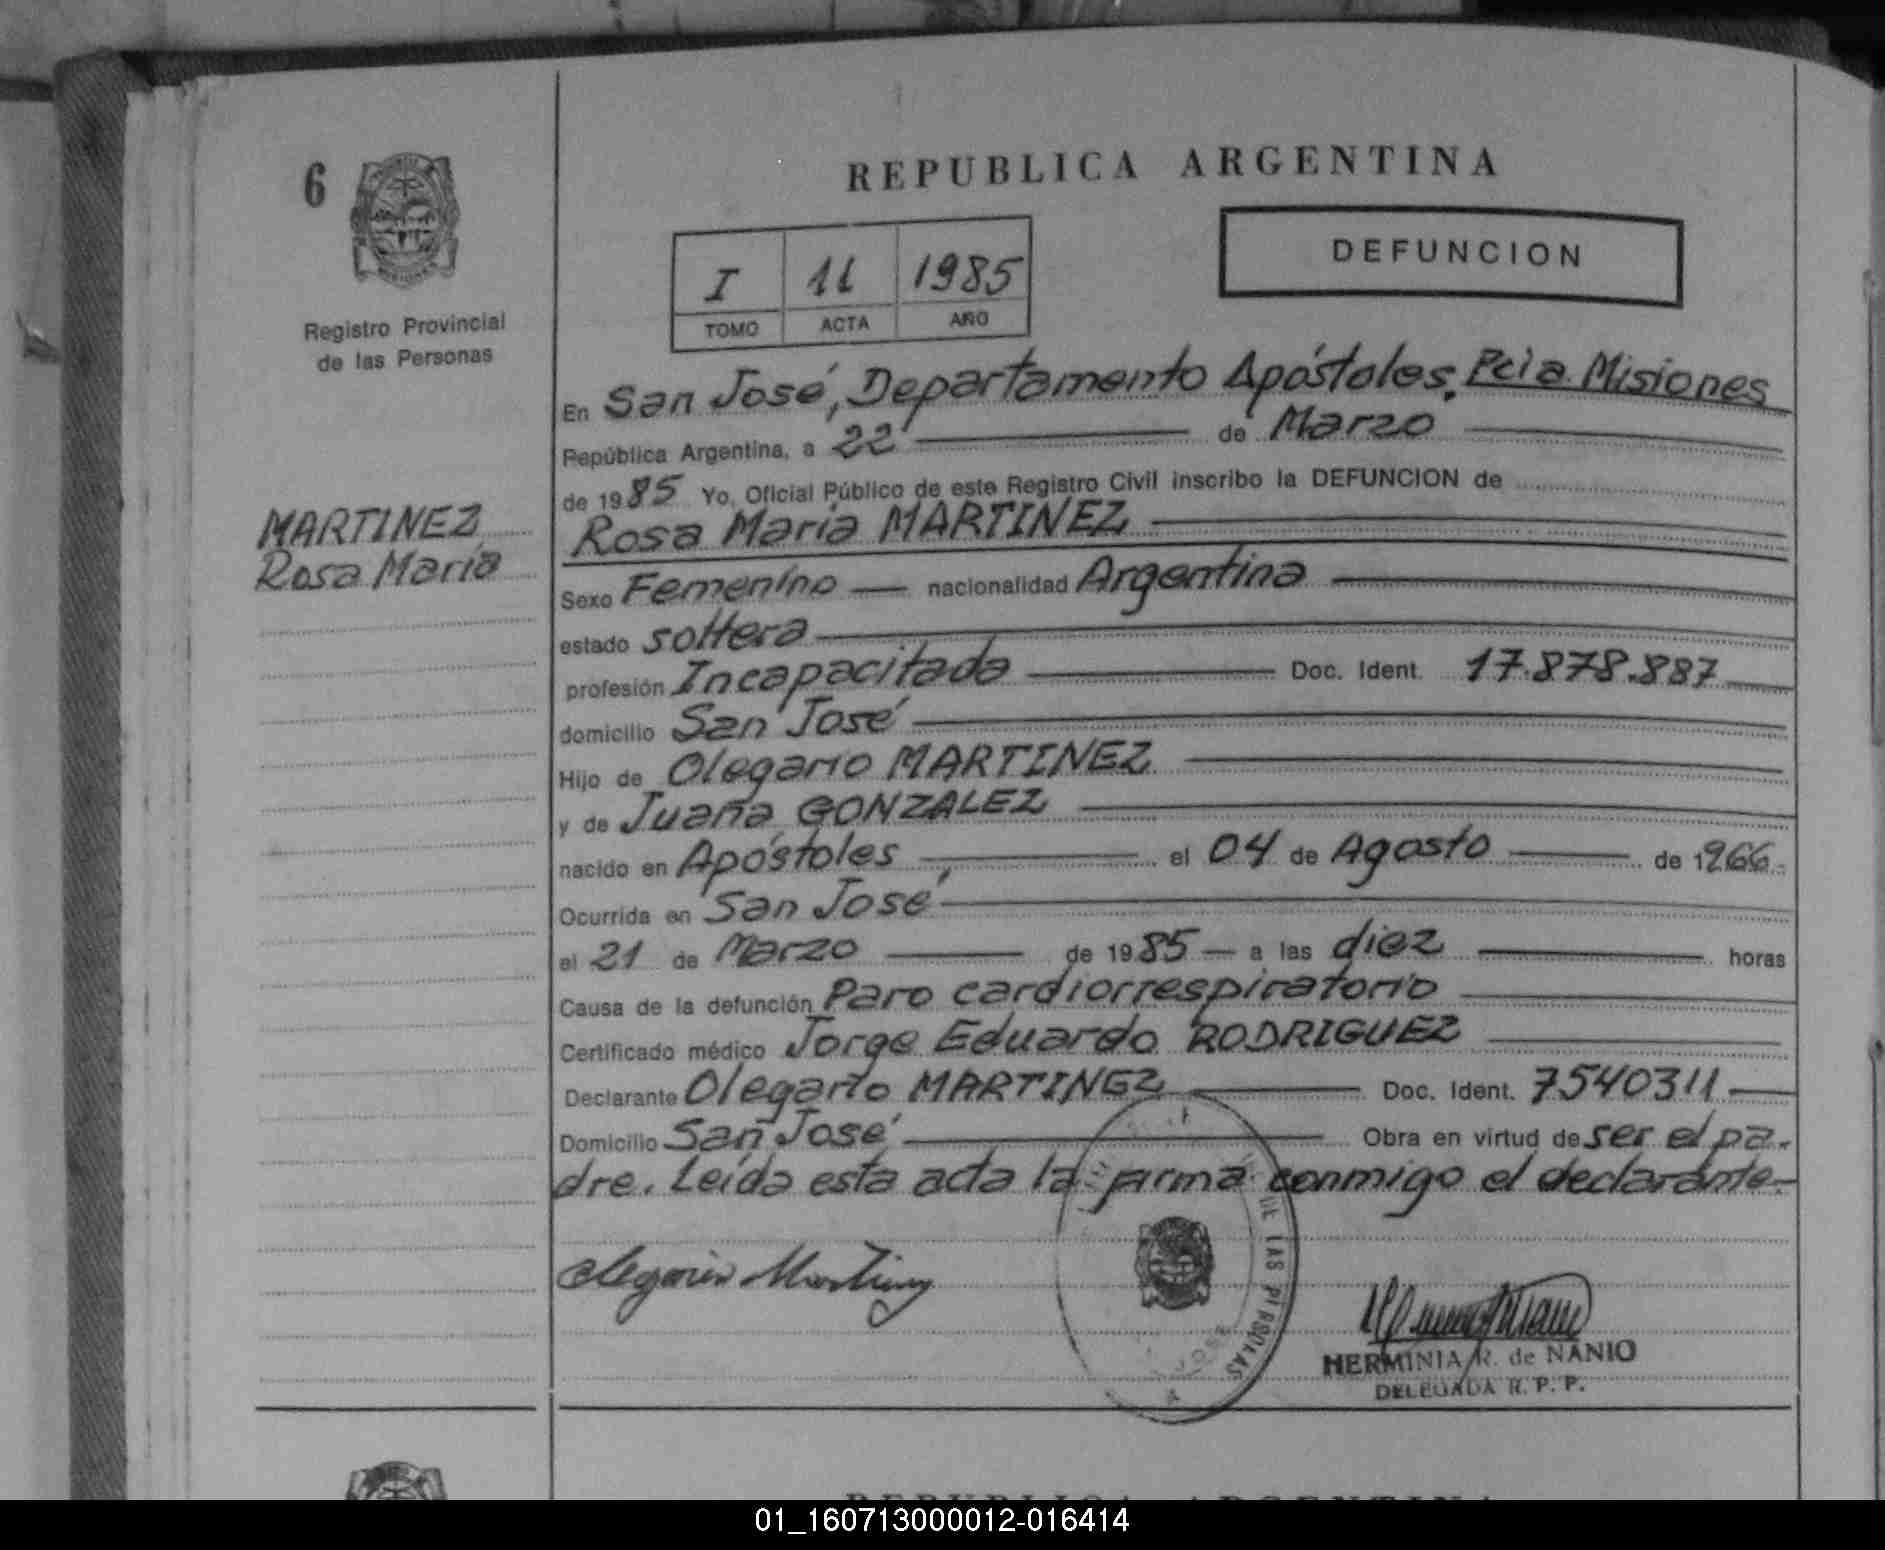 6
REPUBLICA ARGENTINA
DEFUNCION
I 11 1985
TOMO ACTA AÑO
Registro Provincial
de las Personas
En San José, Departamento Apóstoles. Pcia Misiones
República Argentina, a 22 de Marzo
de 1985 Yo, Oficial Público de este Registro Civil inscribo la DEFUNCION de
MARTINEZ
Rosa María
Rosa María MARTINEZ
Sexo Femenino nacionalidad Argentina
estado soltera
profesión Incapacitada Doc. Ident. 17.878.887
domicilio San José
Hijo de Olegario MARTINEZ
y de Juana GONZALEZ
nacido en Apóstoles, el 04 de Agosto de 1966
Ocurrida en San José
el 21 de Marzo de 1985 a las diez horas
Causa de la defunción Paro cardiorrespiratorio
Certificado médico Jorge Eduardo RODRIGUEZ
Declarante Olegario MARTINEZ Doc. Ident. 7540311
Domicilio San José Obra en virtud de ser el pa-
dre. Leída esta acta la firma conmigo el declarante
Olegario Martinez
DE LAS PERSONAS
JOSE
HERMINIA R. de NANIO
DELEGADA R. P. P.
REPUBLICA ARGENTINA
01_160713000012-016414